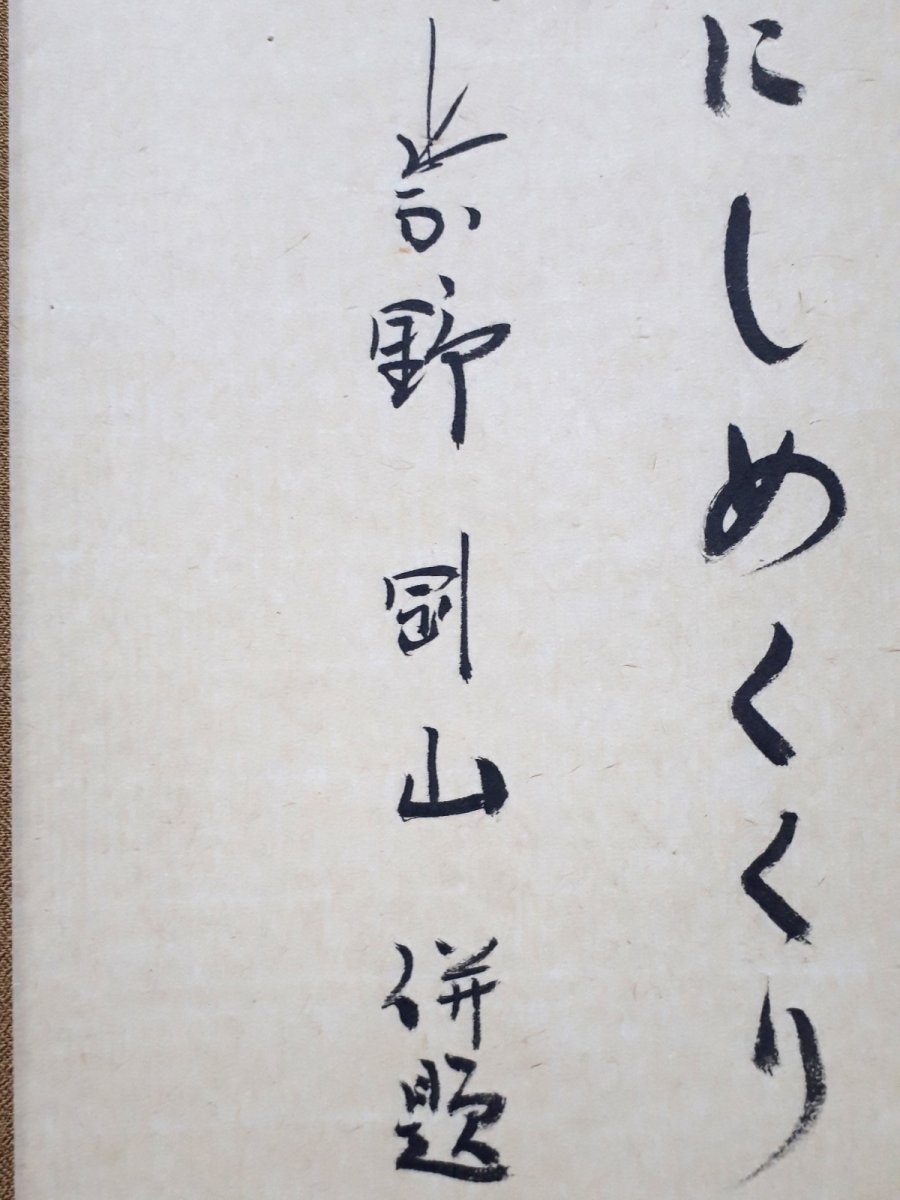 にしめくくり
紫野 剛山 併題